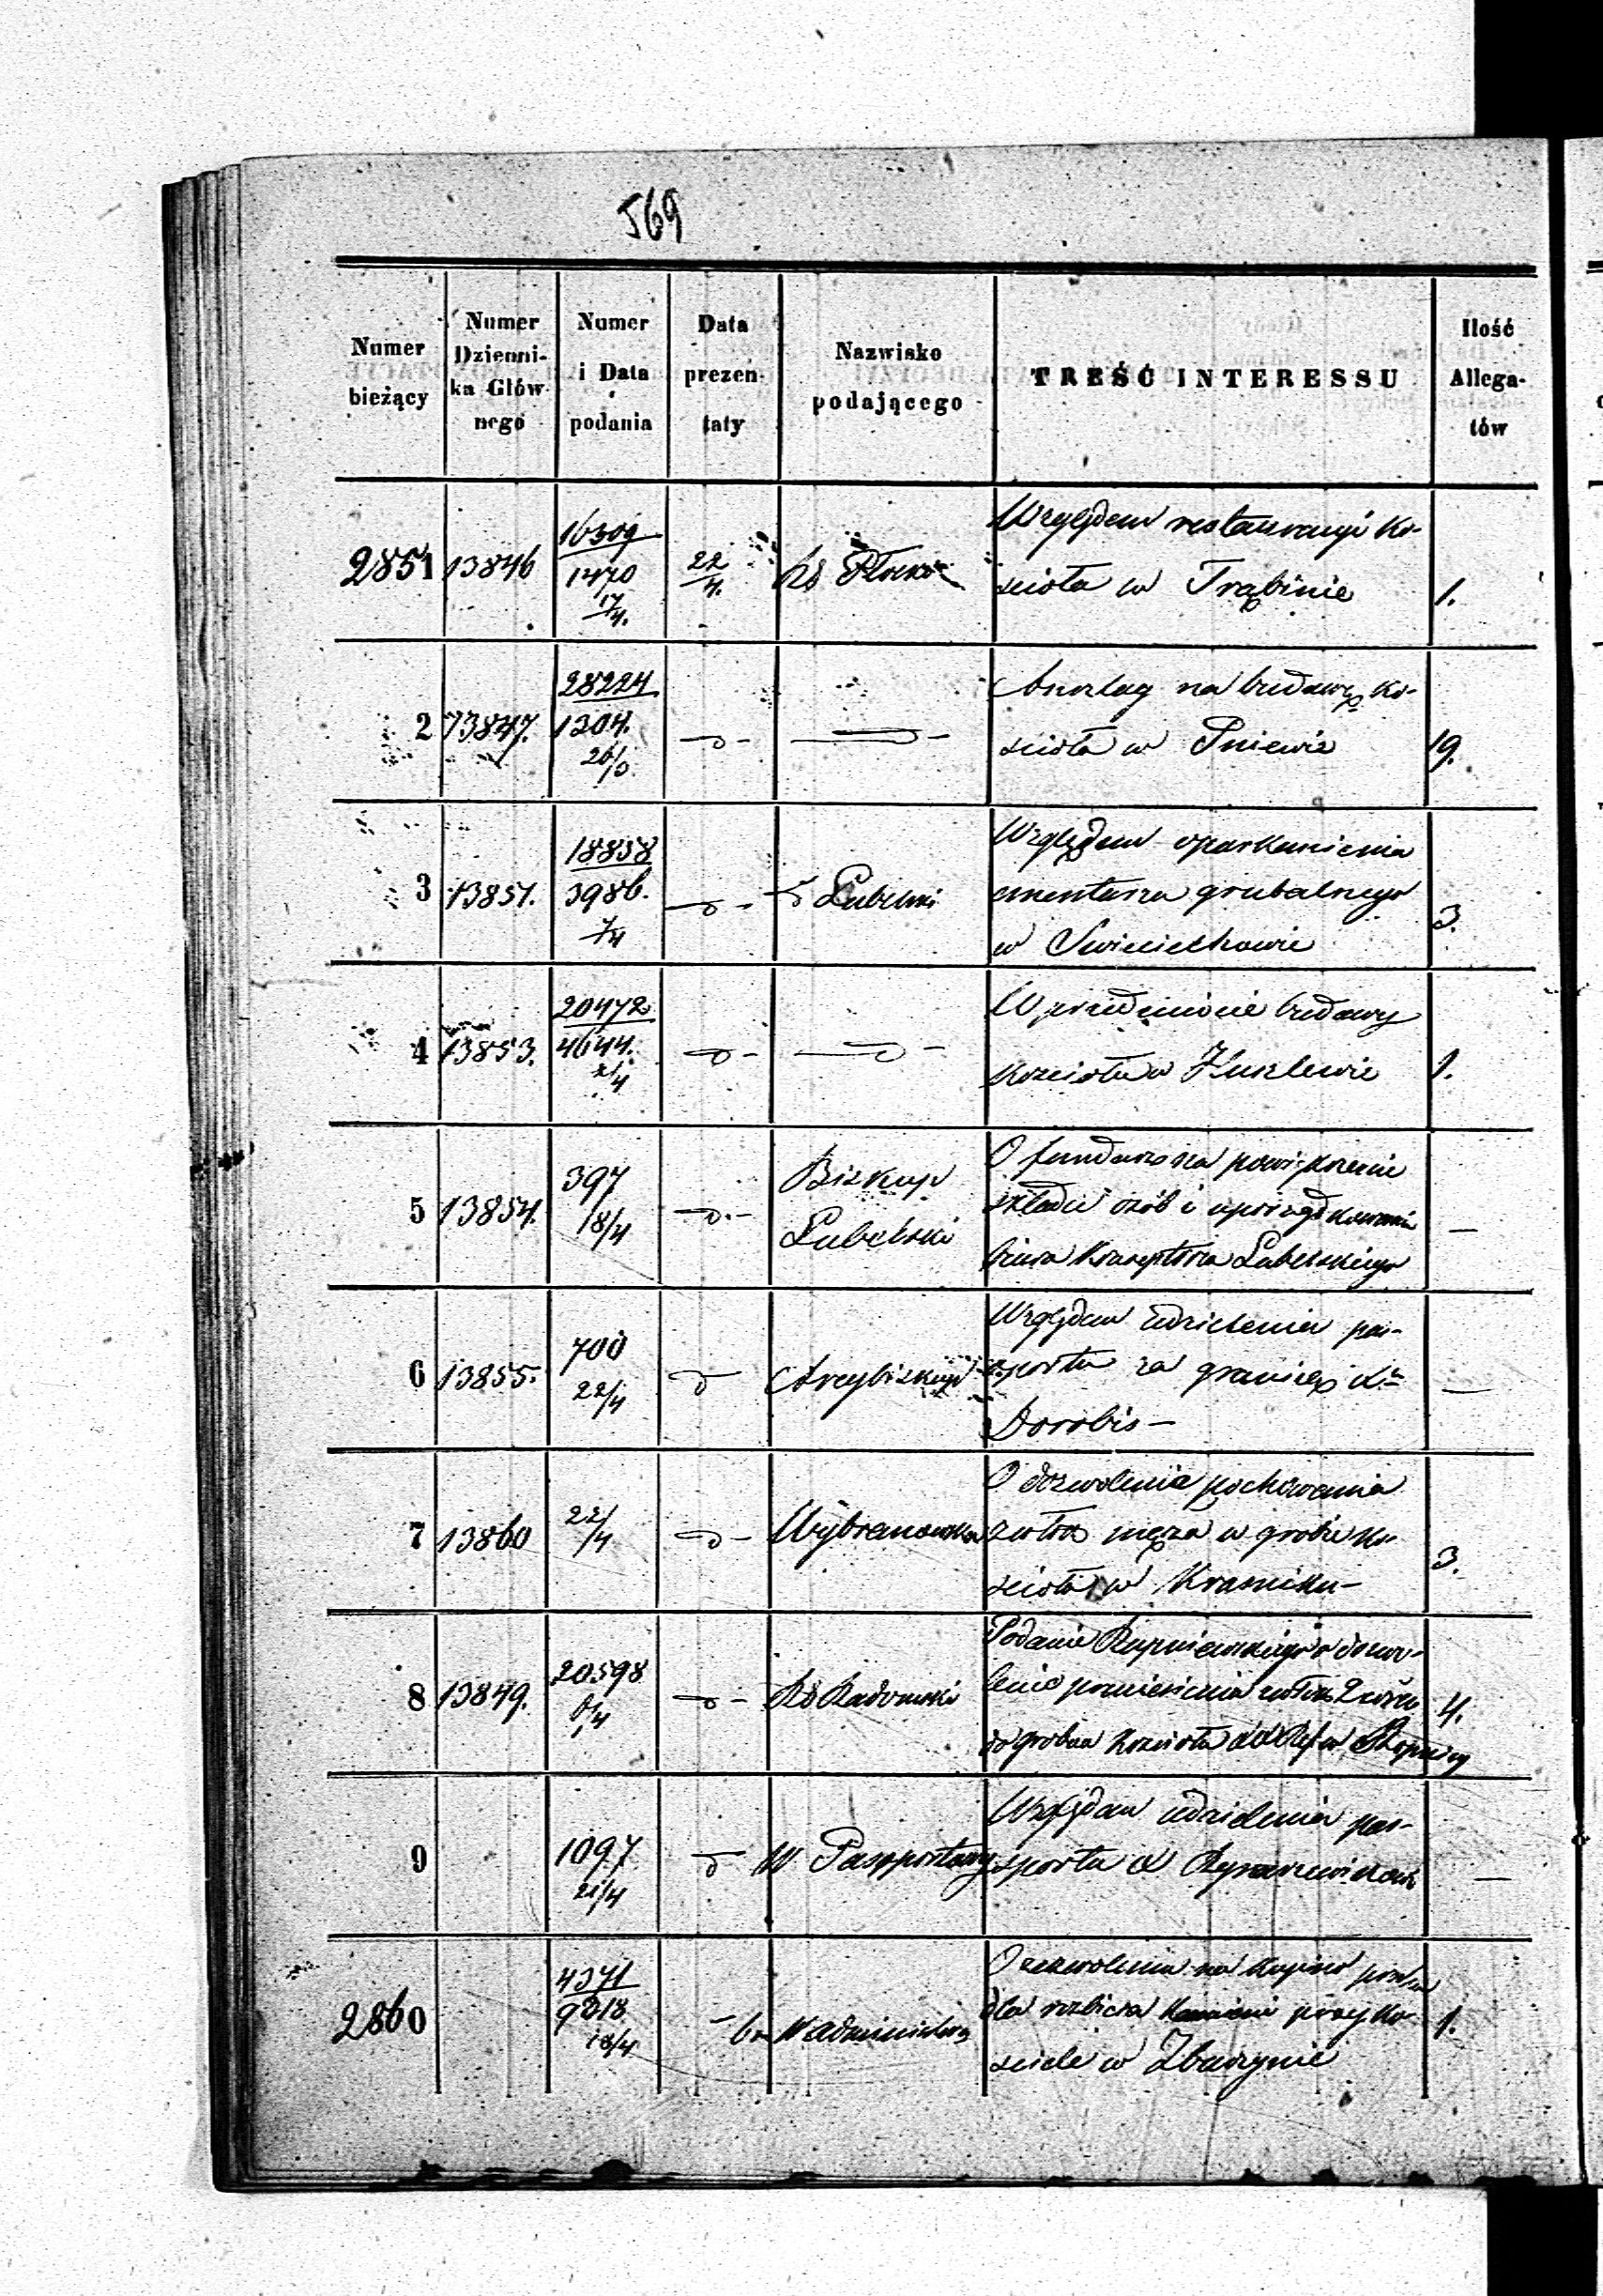 569
Numer bieżący
Numer Dzienni- ka Głów- nego
Numer i Data podania
Data prezen- taty
Nazwisko podającego
TREŚĆ INTERESSU
Ilość Allega- tów
2851 13846 16309 1470 17/4. 22/4. Rd Płocki
Względem restauracyi ko-
scioła w Trąbinie 1.
2 13847. 28224 1304. 26/10. —„—
Anszlag na budowę ko-
scioła w Pniewie 19.
3 13851. 18838 3986. 7/4 —„— Lubelski
Względem oparkanienia
cmentarza grzebalnego
w Swieciechowie 3.
4 13853. 20472 4644. 21/4 —„—
W przedmiocie budowy
kościoła w 1.
5 13854. 397 18/4 —„— Biskup Lubelski
O fundusz na powiększenie
składu osób i uporządkowanie
biura Konsystorza Lubelskiego —
6 13855. 700 22/4 „ Arcybiskup
Względem udzielenia pas-
sportu za granicę Xu
Dorobis — —
7 13860 22/4 —„— Wybranowska
O dozwolenie pochowania
zwłok męża w grobie ko-
scioła w Krasniku — 3.
8 13849. 20598 8/4 —„— Rd Radomski
Podanie o dozwo-
lenie pomieszczenia zwłok
do grobu kościoła XX Ref w 4.
9 1097 21/4 „ W Paszportowy
Względem udzielenia pas-
sportu X —
2860 4371 9318 18/4 W Administra
O zezwolenie na kupno
dla rozbicia kamieni przy ko-
sciele w Zbuczynie 1.